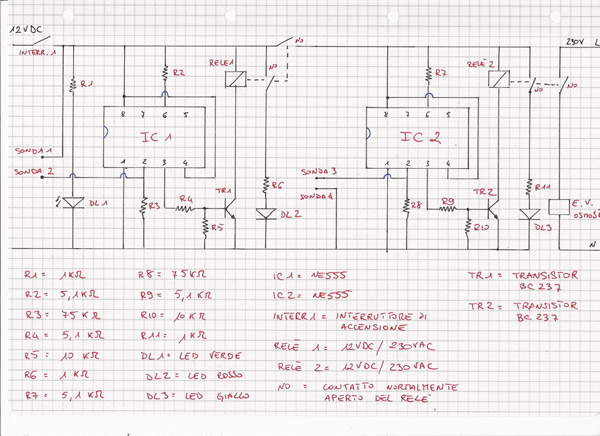 12VDC
INTERR.1
NO
230V L
R1
R2
RELÈ 1
NO
R7
RELÈ 2
NO
NO
8 7 6 5
IC1
1 2 3 4
8 7 6 5
IC2
1 2 3 4
SONDA 1
SONDA 2
SONDA 3
SONDA 4
DL1
R3
R4
R5
TR1
R6
DL2
R8
R9
R10
TR2
R11
DL3
E.V.
OSMOSI
N
R1 = 1KΩ
R2 = 5,1KΩ
R3 = 75KΩ
R4 = 5,1KΩ
R5 = 10KΩ
R6 = 1KΩ
R7 = 5,1KΩ
R8 = 75KΩ
R9 = 5,1KΩ
R10 = 10KΩ
R11 = 1KΩ
DL1 = LED VERDE
DL2 = LED ROSSO
DL3 = LED GIALLO
IC1 = NE555
IC2 = NE555
INTERR1 = INTERRUTTORE DI
ACCENSIONE
RELÈ 1 = 12VDC/230VAC
RELÈ 2 = 12VDC/230VAC
NO = CONTATTO NORMALMENTE
APERTO DEL RELE'
TR1 = TRANSISTOR
BC237
TR2 = TRANSISTOR
BC237